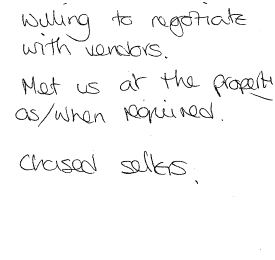 Willing to negotiate
with vendors.
Met us at the property
as/when required.
Chased sellers.